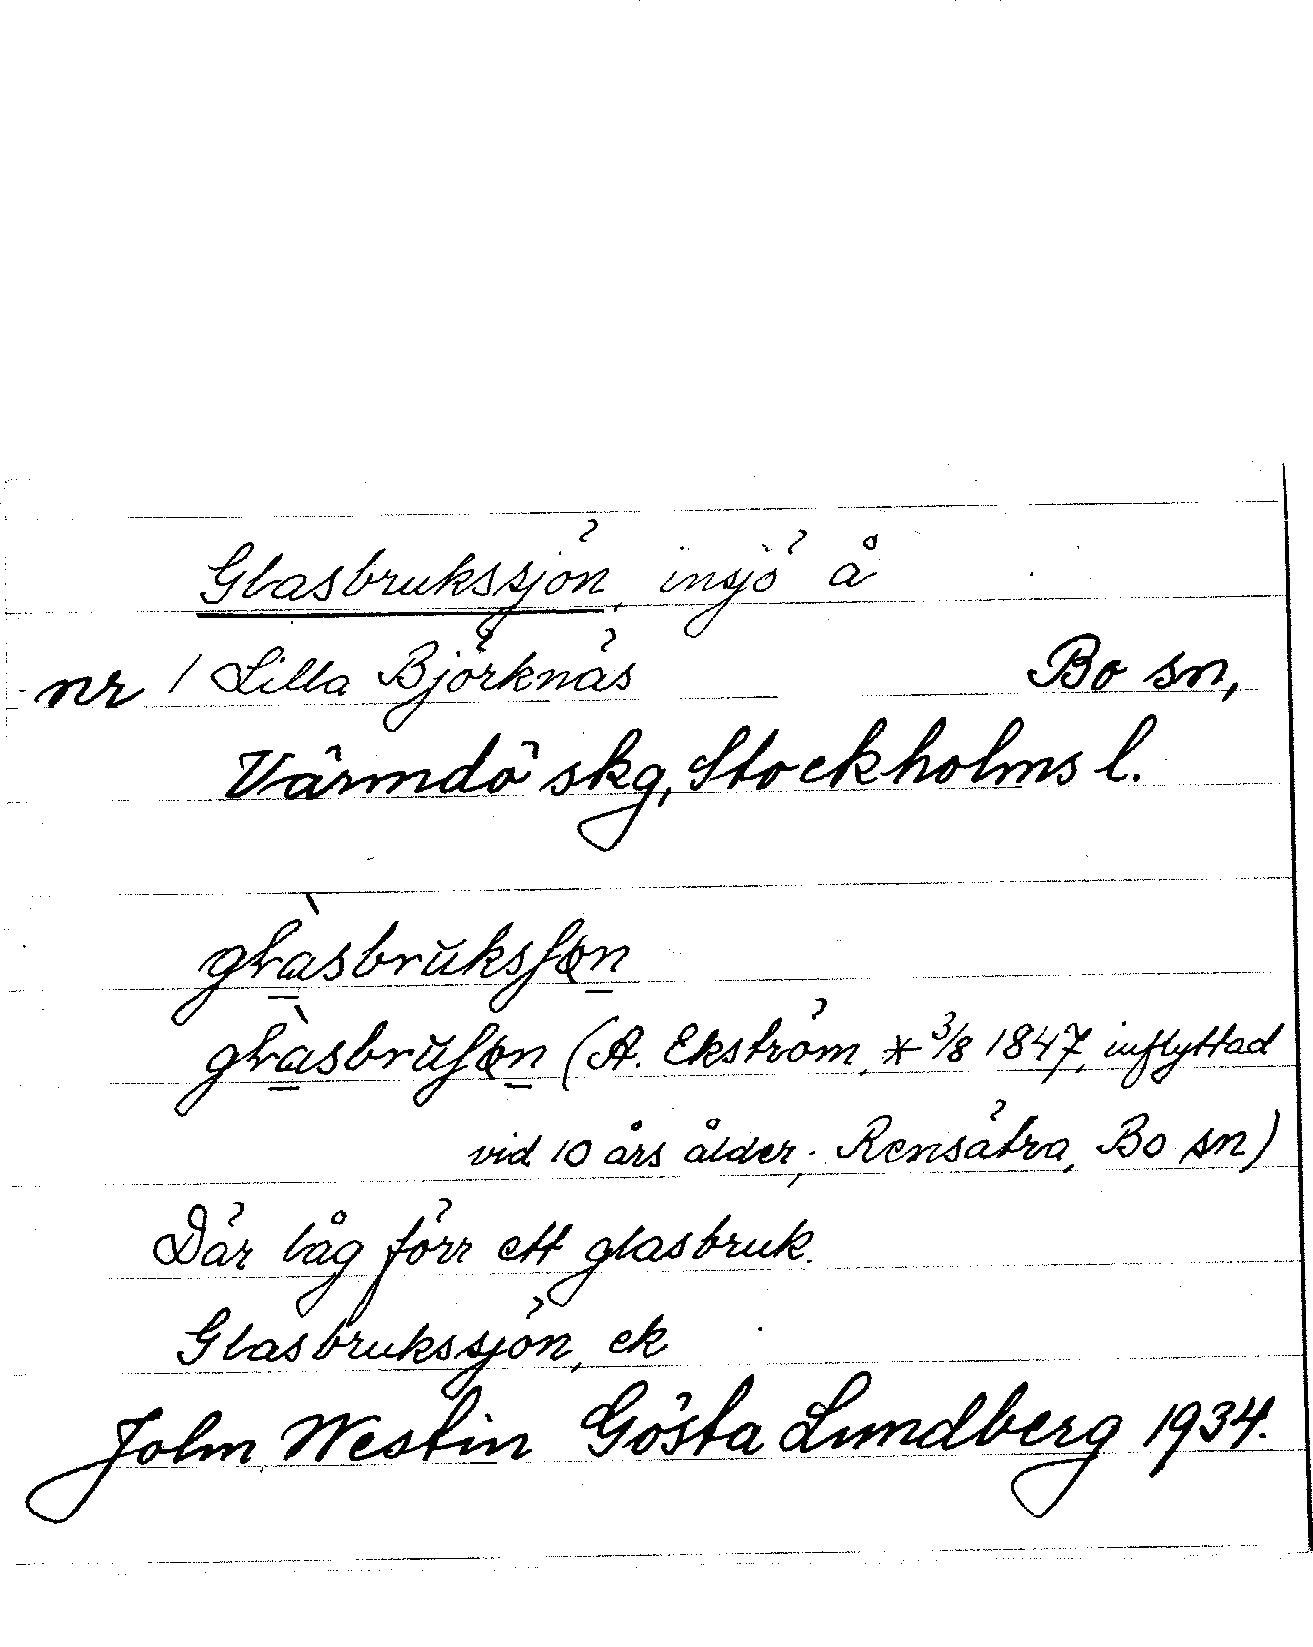 Glasbrukssjön, insjö å
nr 1 Lilla Björknäs Bo sn,
Värmdö skg, Stockholms l.
glàsbrŭksʃøn
glàsbrŭʃøn (A. Ekström, * 3/8 1847, inflyttad
vid 10 års ålder; Rensätra, Bo sn)
Där låg förr ett glasbruk.
Glasbrukssjön, ek
John Westin Gösta Lundberg 1934.